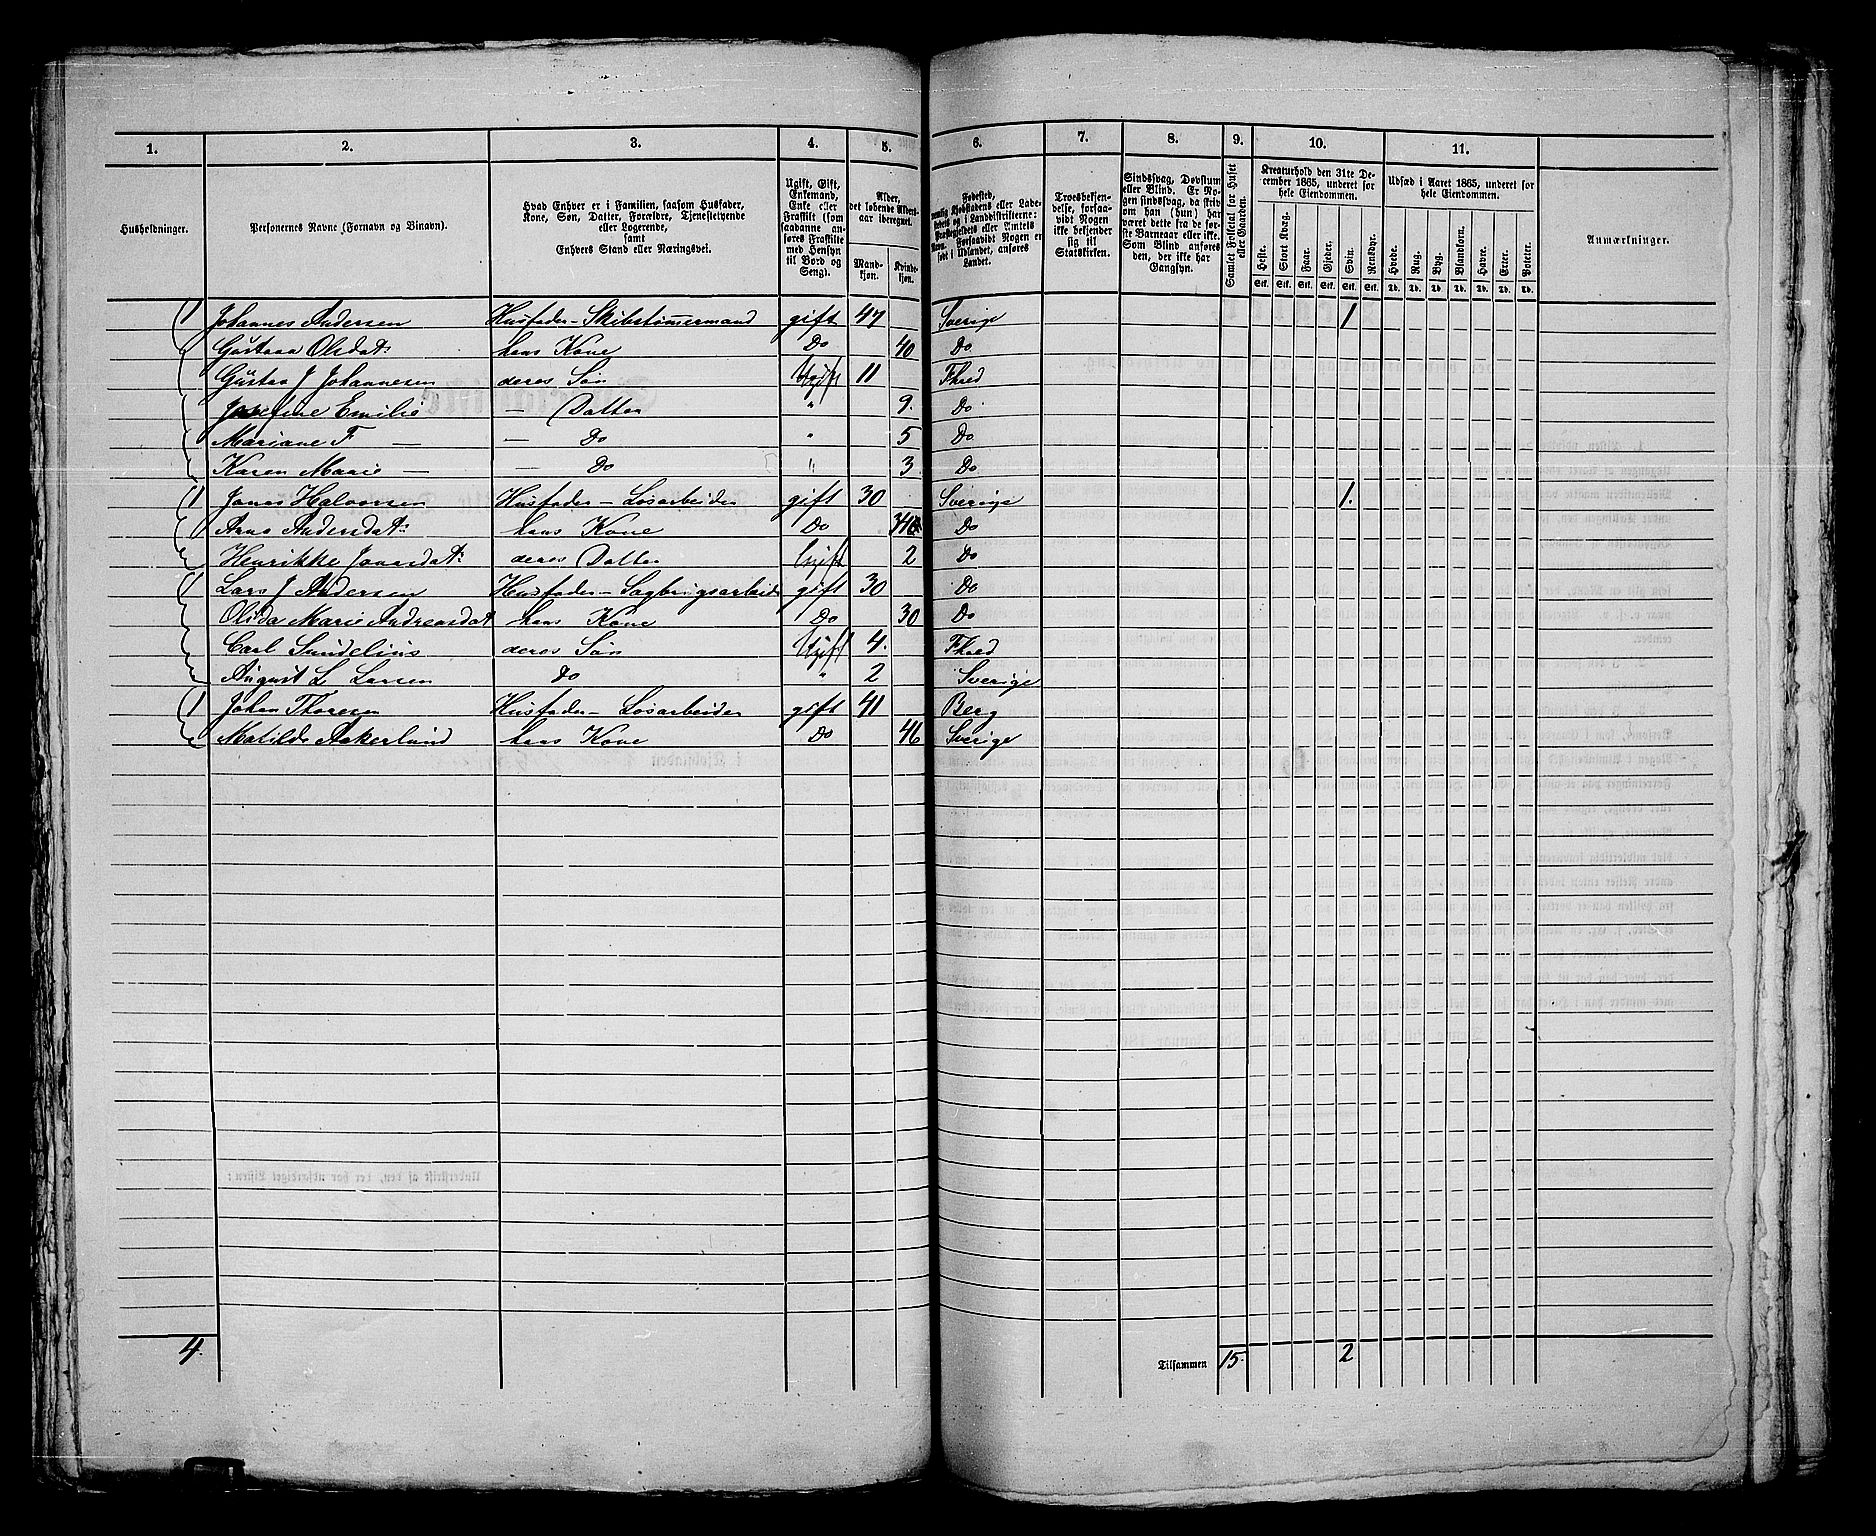 1. 2. 3. 4. 5. 6. 7. 8. 9. 10. 11.
Husholdninger.
Personernes Navne (Fornavn og Binavn).
Hvad Enhver er i Familien, saasom Husfader,
Kone, Søn, Datter, Forældre, Tjenestetyende
eller Logerende,
samt
Enhvers Stand eller Næringsvei.
Ugift, Gift,
Enkemand,
Enke eller
Fraskilt (som
saadanne an-
føres Fraskilte
med Hensyn
til Bord og
Seng).
Alder,
det løbende Alders-
aar iberegnet.
Mand-
kjøn.
Kvinde-
kjøn.
Fødested,
Landet.
Troesbekjen-
delse, forsaa-
vidt Nogen
ikke bekjender
sig til
Statskirken.
Sindssvag, Døvstum
eller Blind. Er No-
gen sindssvag, da skriv
om han (hun) har
været dette fra de før-
ste Barneaar eller ikke.
Som Blind anføres
den, der ikke har
Gangsyn.
Samlet Folketal for Huset
eller Gaarden.
Kreaturhold den 31te De-
cember 1865, underet for
hele Eiendommen.
Heste. Stort Kvæg. Faar. Gjeder. Svin. Rensdyr.
Stk. Stk. Stk. Stk. Stk. Stk.
Udsæd i Aaret 1865, underet for
hele Eiendommen.
Hvede. Rug. Byg. Blandkorn. Havre. Erter. Poteter.
Td. Td. Td. Td. Td. Td. Td.
Anmærkninger.
1 Johannes Andersen Husfader – Skibstømermand gift 47 Sverige 1
Gustava Olsdat: hans Kone Do 40 Do
Gustav J Johannesen deres Søn Ugift 11 Fhred
Josefine Emilie — Datter " 9. Do
Mariane F — — Do " 5 Do
Karen Marie — — Do " 3 Do
1 Jonas Halvorsen Husfader – Løsarbeider gift 30 Sverige 1.
Anna Andersdat: hans Kone Do Do
Henrikke Jonasdat: deres Datter Ugift 2 Do
1 Lars J Andersen Husfader – Sagbrugsarbeid gift 30 Do
Olida Marie Andreasdat hans Kone Do 30 Do
Carl Sundelius deres Søn Ugift 4. Fhred
August L Larsen Do " 2 Sverige
1 Johan Thoresen Husfader – Løsarbeider gift 41 Berg
Matilda Aakerlund hans Kone Do 46 Sverige
4. Tilsammen 15. 2